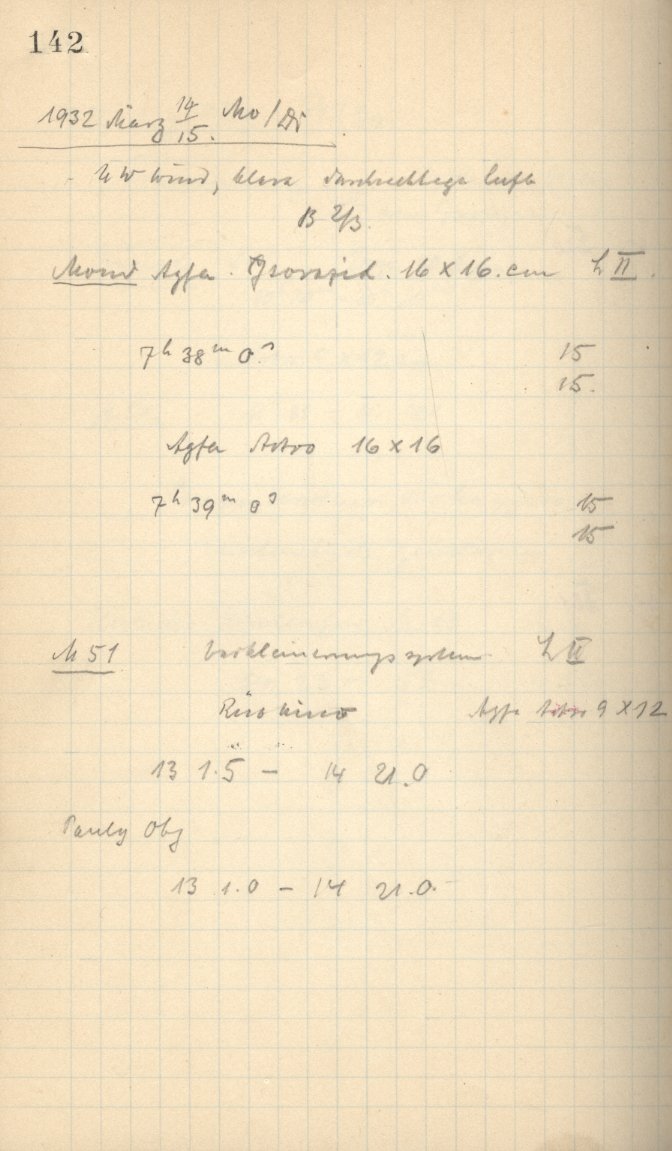 142
1932 März 14/15. Mo/Di
NW Wind, klare durchsichtige Luft
B 2/3.
Mond Agfa. 16 x 16. cm L II.
7h 38m 0s 15
15.
Agfa Astro 16 x 16
7h 39m 0s 15
15
M 51 Verkleinerungssystem L II
Agfa Astro 9 x 12
13 1.5 – 14 21.0
Pauly Obj
13 1.0 – 14 21.0.